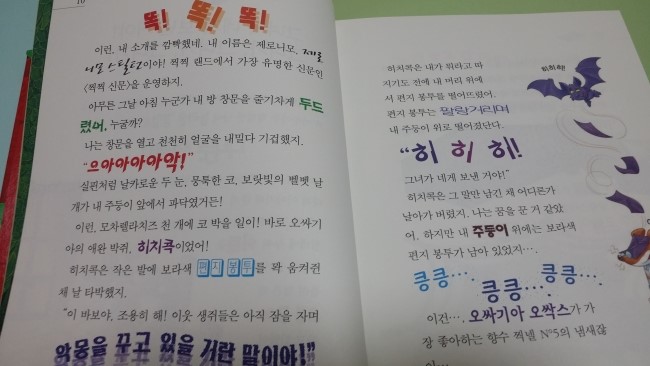 10
똑! 똑! 똑!
이런, 내 소개를 깜빡했네. 내 이름은 제로니모, 제로
니모 스틸턴이야! 찍찍 랜드에서 가장 유명한 신문인
《찍찍 신문》을 운영하지.
아무튼 그날 아침 누군가 내 방 창문을 줄기차게 두드
렸어. 누굴까?
나는 창문을 열고 천천히 얼굴을 내밀다 기겁했지.
"으아아아아악!"
실핀처럼 날카로운 두 눈, 뭉툭한 코, 보랏빛의 벨벳 날
개가 내 주둥이 앞에서 파닥였거든!
이런, 모차렐라치즈 천 개에 코 박을 일이! 바로 오싸기
아의 애완 박쥐, 히치콕이었어!
히치콕은 작은 발에 보라색 편지 봉투를 꽉 움켜쥔
채 날 타박했지.
"이 바보야, 조용히 해! 이웃 생쥐들은 아직 잠을 자며
악몽을 꾸고 있을 거란 말이야!"
히히히!
히치콕은 내가 뭐라고 따
지기도 전에 내 머리 위에
서 편지 봉투를 떨어뜨렸어.
편지 봉투는 팔랑거리며
내 주둥이 위로 떨어졌단다.
"히 히 히!
그녀가 네게 보낸 거야!"
히치콕은 그 말만 남긴 채 어디론가
날아가 버렸지. 나는 꿈을 꾼 거 같았
어. 하지만 내 주둥이 위에는 보라색
편지 봉투가 남아 있었지….
킁킁…. 킁킁…. 킁킁….
이건…. 오싸기아 오싹스가 가
장 좋아하는 향수 찍넬 Nº5의 냄새잖